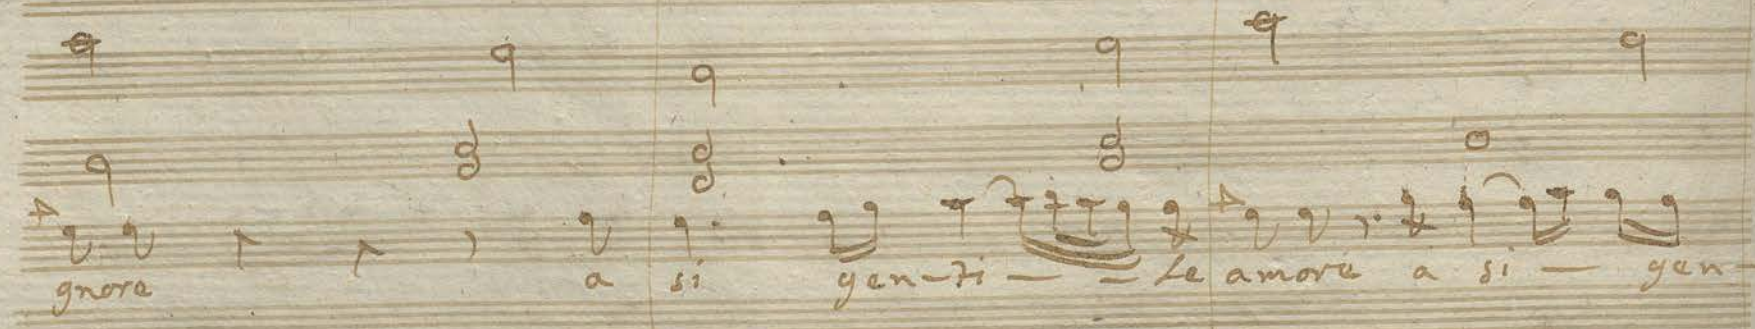 gnore a si gen-ti - - le amore a si - gen-